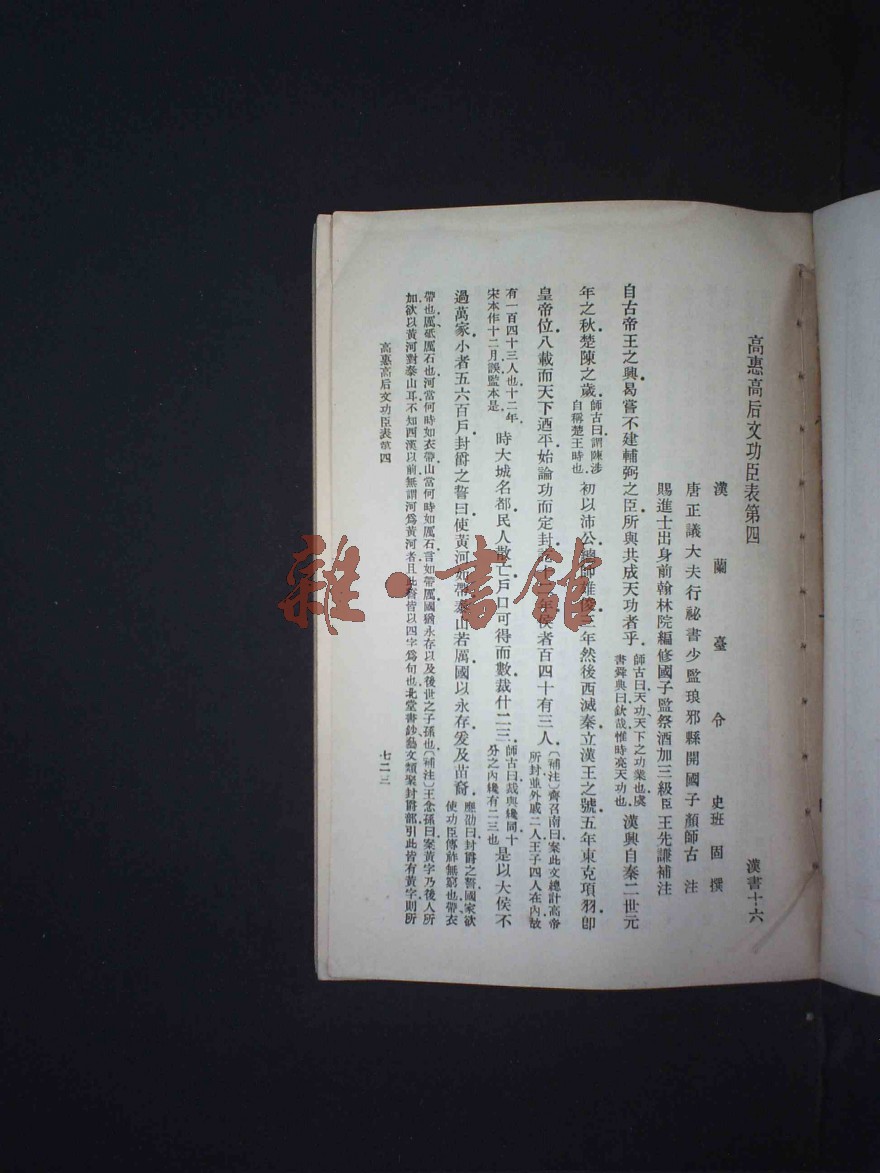 高惠高后文功臣表第四
漢書十六
漢蘭臺令史班固撰
唐正議大夫行祕書少監琅邪縣開國子顏師古注
賜進士出身前翰林院編修國子監祭酒加三級臣王先謙補注
自古帝王之興曷嘗不建輔弼之臣所與共成天功者乎師古曰天功天下之功業也虞
書舜典曰欽哉惟時亮天功也漢興自秦二世元
年之秋楚陳之歲師古曰謂陳涉
自稱楚王時也初以沛公總師雄俊三年然後西滅秦立漢王之號五年東克項羽即
皇帝位八載而天下迺平始論功而定封訖十二年侯者百四十有三人〔補注〕齊召南曰案此文總計高帝
所封並外戚二人王子四人在內故
有一百四十三人也十二年
宋本作十二月誤監本是時大城名都民人散亡戶口可得而數裁什二三師古曰裁與纔同十
分之內纔有二三也是以大侯不
過萬家小者五六百戶封爵之誓曰使黃河如帶泰山若厲國以永存爰及苗裔應劭曰封爵之誓國家欲
使功臣傳祚無窮也帶衣
帶也厲砥厲石也河當何時如衣帶山當何時如厲石言如帶厲國猶永存以及後世之子孫也〔補注〕王念孫曰案黃字乃後人所
加欲以黃河對泰山耳不知西漢以前無謂河爲黃河者且此誓皆以四字爲句也北堂書鈔藝文類聚封爵部引此皆有黃字則所
高惠高后文功臣表第四
七二三
雜·書館